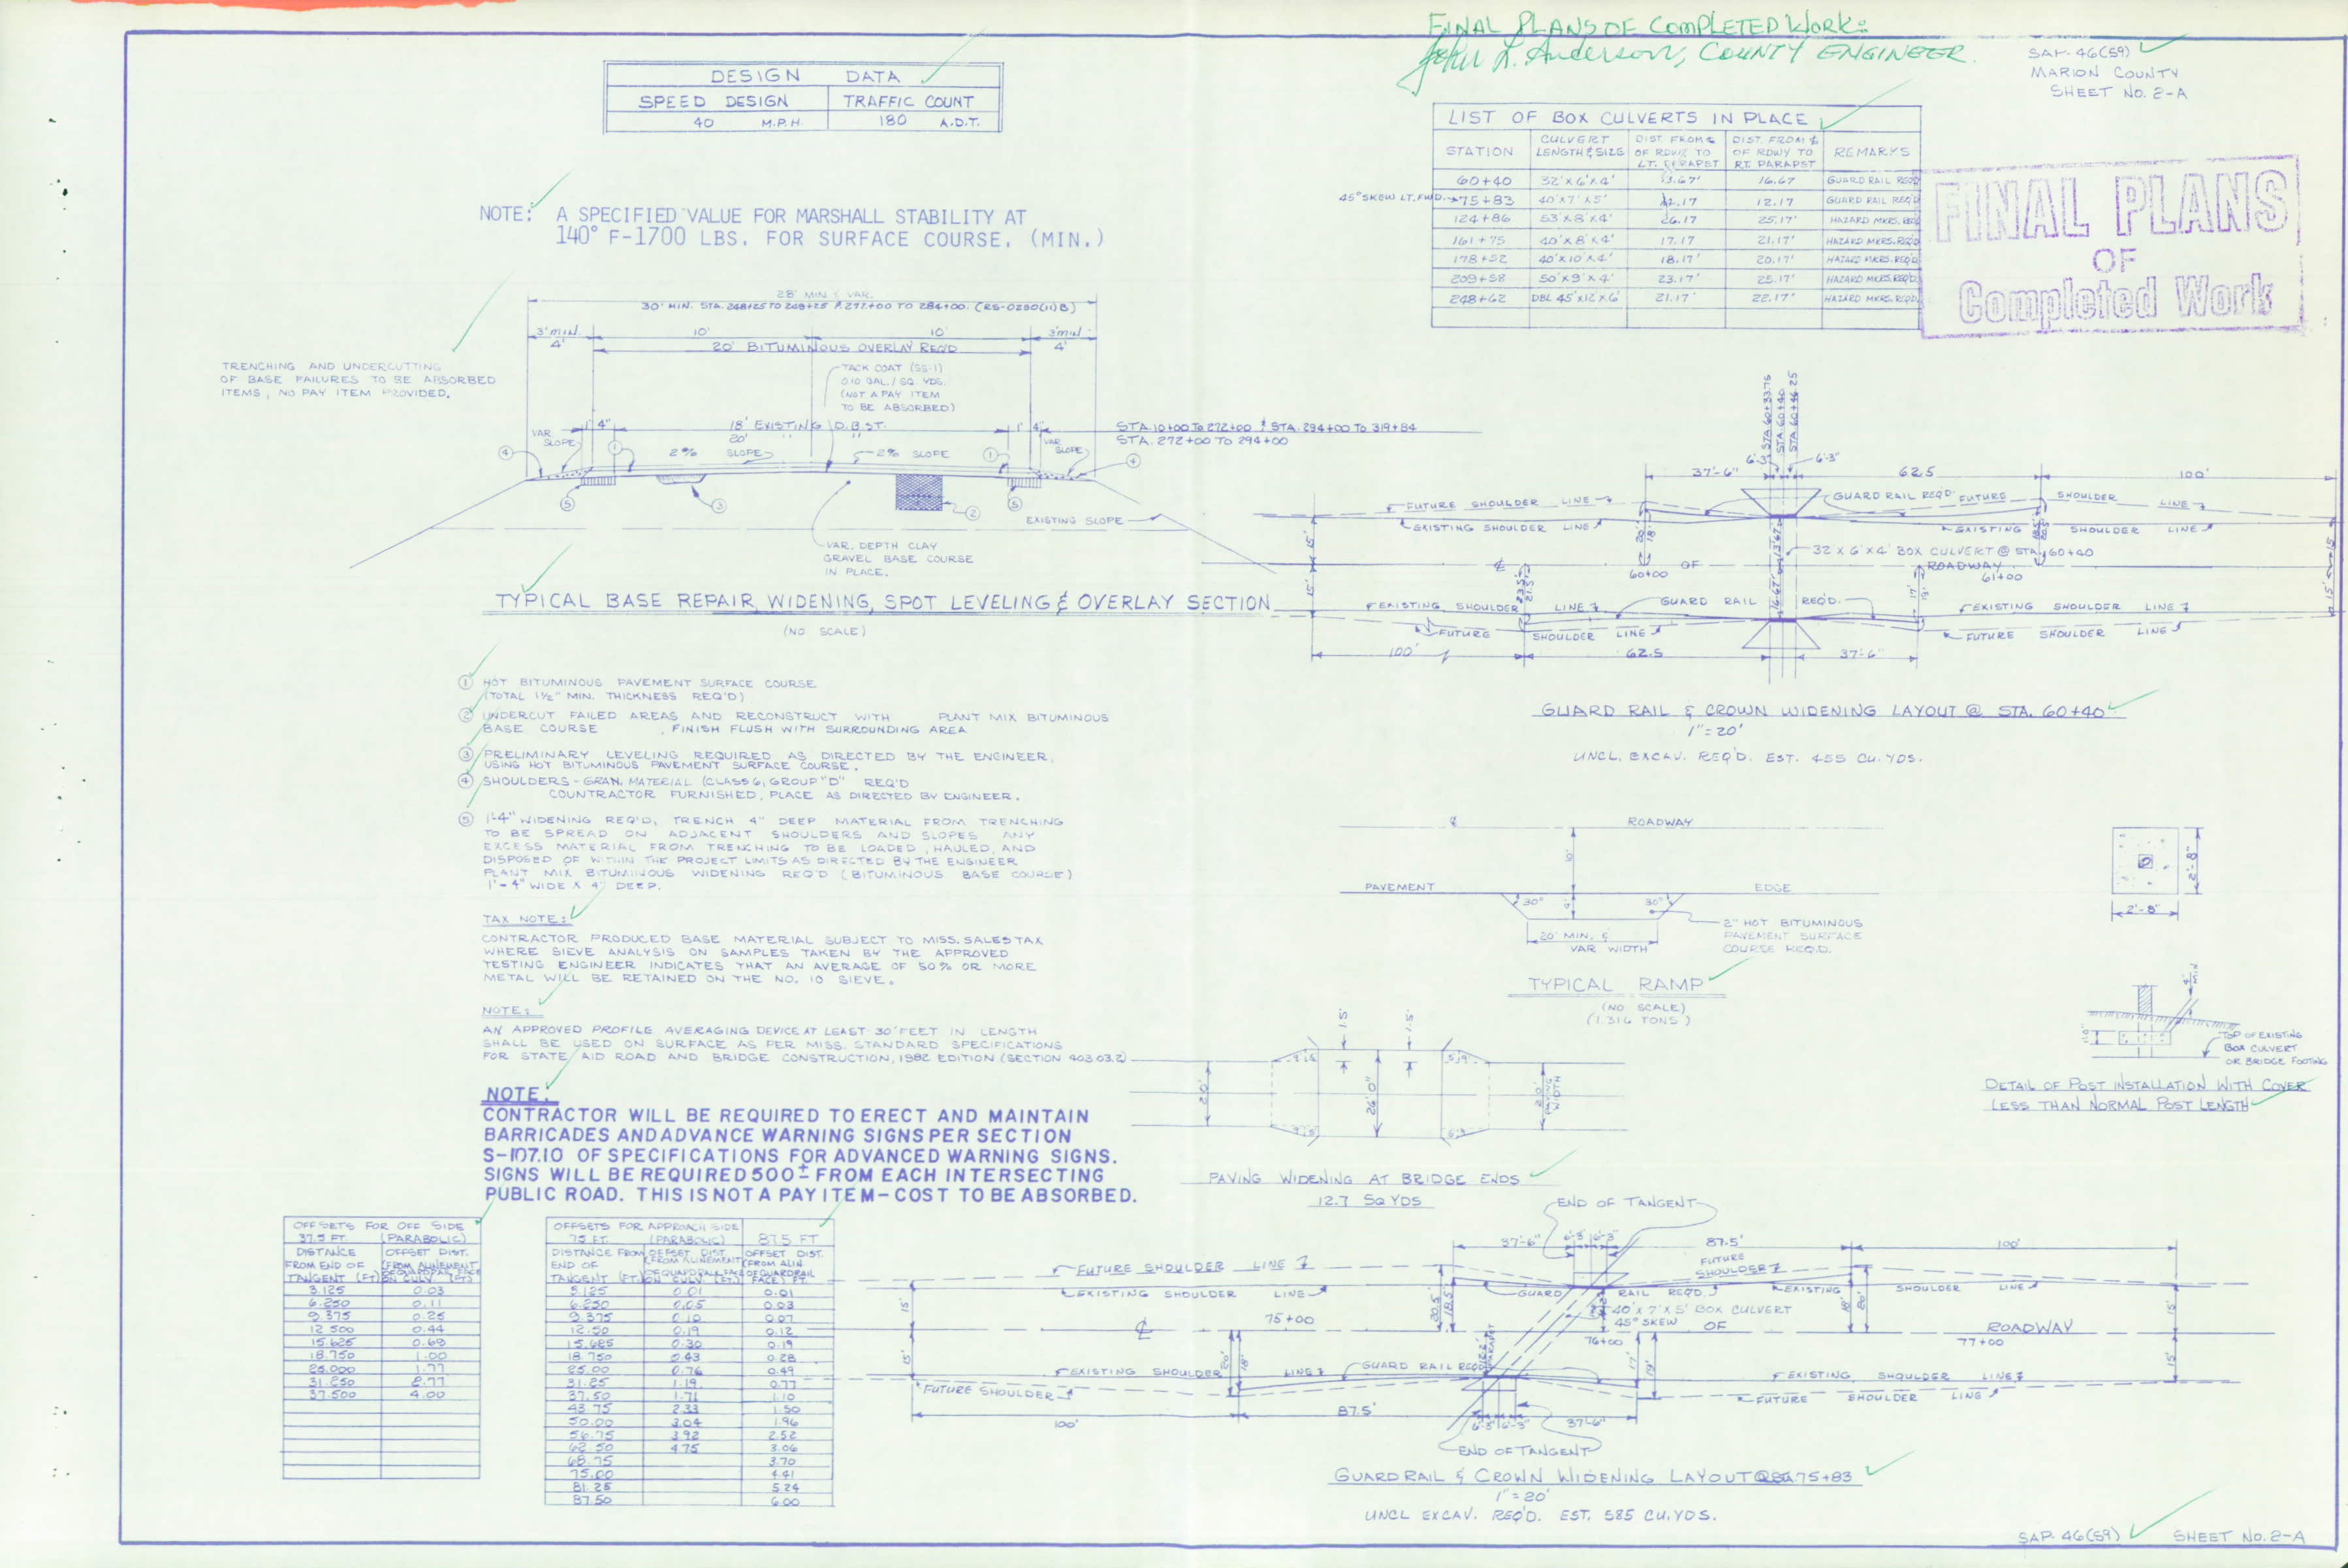 FINAL PLANS OF COMPLETED WORK:
John L. Anderson, COUNTY ENGINEER.
SAP-46(59)
MARION COUNTY
SHEET NO. 2-A
DESIGN DATA
SPEED DESIGN TRAFFIC COUNT
40 M.P.H. 180 A.D.T.
LIST OF BOX CULVERTS IN PLACE
STATION CULVERT LENGTH & SIZE DIST. FROM ℄ OF RDWY TO LT. PARAPET DIST. FROM ℄ OF RDWY TO RT. PARAPET REMARKS
60+40 32'X6'X4' 13.67' 16.67 GUARD RAIL REQ'D
45° SKEW LT. FWD. 75+83 40'X7'X5' 12.17 12.17 GUARD RAIL REQ'D
124+86 53'X8'X4' 26.17 25.17' HAZARD MKRS. REQ'D
161+75 40'X8'X4' 17.17 21.17' HAZARD MKRS. REQ'D
178+52 40'X10'X4' 18.17' 20.17' HAZARD MKRS. REQ'D
209+58 50'X9'X4' 23.17' 25.17' HAZARD MKRS. REQ'D
248+62 DBL 45'X12'X6' 21.17' 22.17' HAZARD MKRS. REQ'D
FINAL PLANS
OF
Completed Work
NOTE: A SPECIFIED VALUE FOR MARSHALL STABILITY AT
140° F-1700 LBS. FOR SURFACE COURSE. (MIN.)
28' MIN & VAR.
30' MIN. STA. 248+25 TO 249+25 & 272+00 TO 284+00. (RS-0250(11)B)
3' min 10' 10' 3' min
4' 20' BITUMINOUS OVERLAY REQ'D 4'
TRENCHING AND UNDERCUTTING
OF BASE FAILURES TO BE ABSORBED
ITEMS, NO PAY ITEM PROVIDED.
TACK COAT (SS-1)
0.10 GAL./SQ. YDS.
(NOT A PAY ITEM
TO BE ABSORBED)
18' EXISTING D.B.S.T.
20' " "
STA. 10+00 TO 272+00 & STA. 294+00 TO 319+84
STA. 272+00 TO 294+00
VAR. SLOPE 1' 4" 2% SLOPE 2% SLOPE 1' 4" VAR. SLOPE
EXISTING SLOPE
VAR. DEPTH CLAY
GRAVEL BASE COURSE
IN PLACE.
TYPICAL BASE REPAIR, WIDENING, SPOT LEVELING & OVERLAY SECTION
(NO SCALE)
① HOT BITUMINOUS PAVEMENT SURFACE COURSE
(TOTAL 1½" MIN. THICKNESS REQ'D)
② UNDERCUT FAILED AREAS AND RECONSTRUCT WITH PLANT MIX BITUMINOUS
BASE COURSE , FINISH FLUSH WITH SURROUNDING AREA
③ PRELIMINARY LEVELING REQUIRED AS DIRECTED BY THE ENGINEER,
USING HOT BITUMINOUS PAVEMENT SURFACE COURSE.
④ SHOULDERS - GRAN. MATERIAL (CLASS 6, GROUP "D" REQ'D
COUNTRACTOR FURNISHED, PLACE AS DIRECTED BY ENGINEER.
⑤ 1'-4" WIDENING REQ'D, TRENCH 4" DEEP MATERIAL FROM TRENCHING
TO BE SPREAD ON ADJACENT SHOULDERS AND SLOPES ANY
EXCESS MATERIAL FROM TRENCHING TO BE LOADED, HAULED, AND
DISPOSED OF WITHIN THE PROJECT LIMITS AS DIRECTED BY THE ENGINEER
PLANT MIX BITUMINOUS WIDENING REQ'D (BITUMINOUS BASE COURSE)
1'-4" WIDE X 4" DEEP.
TAX NOTE:
CONTRACTOR PRODUCED BASE MATERIAL SUBJECT TO MISS. SALES TAX
WHERE SIEVE ANALYSIS ON SAMPLES TAKEN BY THE APPROVED
TESTING ENGINEER INDICATES THAT AN AVERAGE OF 50% OR MORE
METAL WILL BE RETAINED ON THE NO. 10 SIEVE.
NOTE:
AN APPROVED PROFILE AVERAGING DEVICE AT LEAST 30 FEET IN LENGTH
SHALL BE USED ON SURFACE AS PER MISS. STANDARD SPECIFICATIONS
FOR STATE AID ROAD AND BRIDGE CONSTRUCTION, 1982 EDITION (SECTION 403.03.2)
NOTE:
CONTRACTOR WILL BE REQUIRED TO ERECT AND MAINTAIN
BARRICADES AND ADVANCE WARNING SIGNS PER SECTION
S-107.10 OF SPECIFICATIONS FOR ADVANCED WARNING SIGNS.
SIGNS WILL BE REQUIRED 500± FROM EACH INTERSECTING
PUBLIC ROAD. THIS IS NOT A PAY ITEM - COST TO BE ABSORBED.
OFFSETS FOR OFF SIDE
37.5 FT. (PARABOLIC)
DISTANCE FROM END OF TANGENT (FT.) OFFSET DIST. (FROM ALINEMENT OF GUARDRAIL FACE ON CULV. (FT.)
3.125 0.03
6.250 0.11
9.375 0.25
12.500 0.44
15.625 0.69
18.750 1.00
25.000 1.77
31.250 2.77
37.500 4.00
OFFSETS FOR APPROACH SIDE
75 FT. (PARABOLIC) 87.5 FT
DISTANCE FROM END OF TANGENT (FT.) OFFSET DIST. (FROM ALINEMENT OF GUARDRAIL FACE ON CULV. (FT.) OFFSET DIST. (FROM ALIN. OF GUARDRAIL FACE) FT.
3.125 0.01 0.01
6.250 0.05 0.03
9.375 0.10 0.07
12.50 0.19 0.12
15.625 0.30 0.19
18.750 0.43 0.28
25.00 0.76 0.49
31.25 1.19 0.77
37.50 1.71 1.10
43.75 2.33 1.50
50.00 3.04 1.96
56.75 3.92 2.52
62.50 4.75 3.06
68.75 3.70
75.00 4.41
81.25 5.24
87.50 6.00
STA. 60+33.75
STA. 60+40
STA. 60+46.25
37'-6" 6'-3" 6'-3" 62.5 100'
FUTURE SHOULDER LINE GUARD RAIL REQ'D FUTURE SHOULDER LINE
EXISTING SHOULDER LINE EXISTING SHOULDER LINE
32 X 6' X 4' BOX CULVERT @ STA. 60+40
℄ 60+00 OF ROADWAY 61+00
EXISTING SHOULDER LINE GUARD RAIL REQ'D. EXISTING SHOULDER LINE
FUTURE SHOULDER LINE FUTURE SHOULDER LINE
100' 62.5 37'-6"
GUARD RAIL & CROWN WIDENING LAYOUT @ STA. 60+40
1"=20'
UNCL. EXCAV. REQ'D. EST. 455 CU. YDS.
℄ ROADWAY
10'
PAVEMENT EDGE
30° 4' 30°
20' MIN. & VAR WIDTH
2" HOT BITUMINOUS
PAVEMENT SURFACE
COURSE REQ'D.
TYPICAL RAMP
(NO SCALE)
(1.316 TONS)
2'-8"
2'-8"
4" MIN.
TOP OF EXISTING
BOX CULVERT
OR BRIDGE FOOTING
DETAIL OF POST INSTALLATION WITH COVER
LESS THAN NORMAL POST LENGTH
1.5' 1.5'
20' 26'-0" 20' PAVING WIDTH
PAVING WIDENING AT BRIDGE ENDS
12.7 SQ YDS
END OF TANGENT
37'-6" 6'-3" 6'-3" 87.5' 100'
FUTURE SHOULDER LINE FUTURE SHOULDER
EXISTING SHOULDER LINE GUARD RAIL REQ'D. EXISTING SHOULDER LINE
40' X 7' X 5' BOX CULVERT
45° SKEW
75+00 ℄ OF ROADWAY
76+00 77+00
EXISTING SHOULDER LINE GUARD RAIL REQ'D EXISTING SHOULDER LINE
FUTURE SHOULDER FUTURE SHOULDER LINE
100' 87.5' 6'-3" 6'-3" 37'-6"
END OF TANGENT
GUARD RAIL & CROWN WIDENING LAYOUT @ STA. 75+83
1"=20'
UNCL EXCAV. REQ'D. EST. 585 CU. YDS.
SAP-46(59) SHEET NO. 2-A